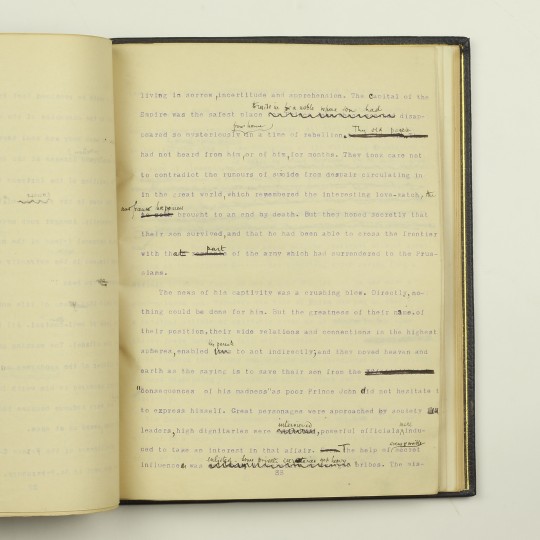 living in sorrow, incertitude and apprehension. The Capital of the
Empire was the safest place
whose son had
disap-
peared so mysteriously
from home
in a time of rebellion.
The old people
had not heard from him, or of him, for months. They took care not
to contradict the rumours of suicide from despair circulating in
in the great world, which remembered the interesting love-match,
happiness
brought to an end by death. But they hoped secretly that
their son survived, and that he had been able to cross the frontier
with that
part
of the army which had surrendered to the Prus-
sians.
The news of his captivity was a crushing blow. Directly, no-
thing could be done for him. But the greatness of their name, of
their position, their wide relations and connections in the highest
spheres, enabled
the parents
to act indirectly, and they moved heaven and
earth as the saying is to save their son from the
"consequences of his madness" as poor Prince John did not hesitate
to express himself. Great personages were approached by society
leaders, high dignitaries were
interviewed
, powerful officials
were
indu-
ced to take an interest in that affair.
The help of
secret
influences was
enlisted. Some private secretaries got heavy
bribes. The mis-